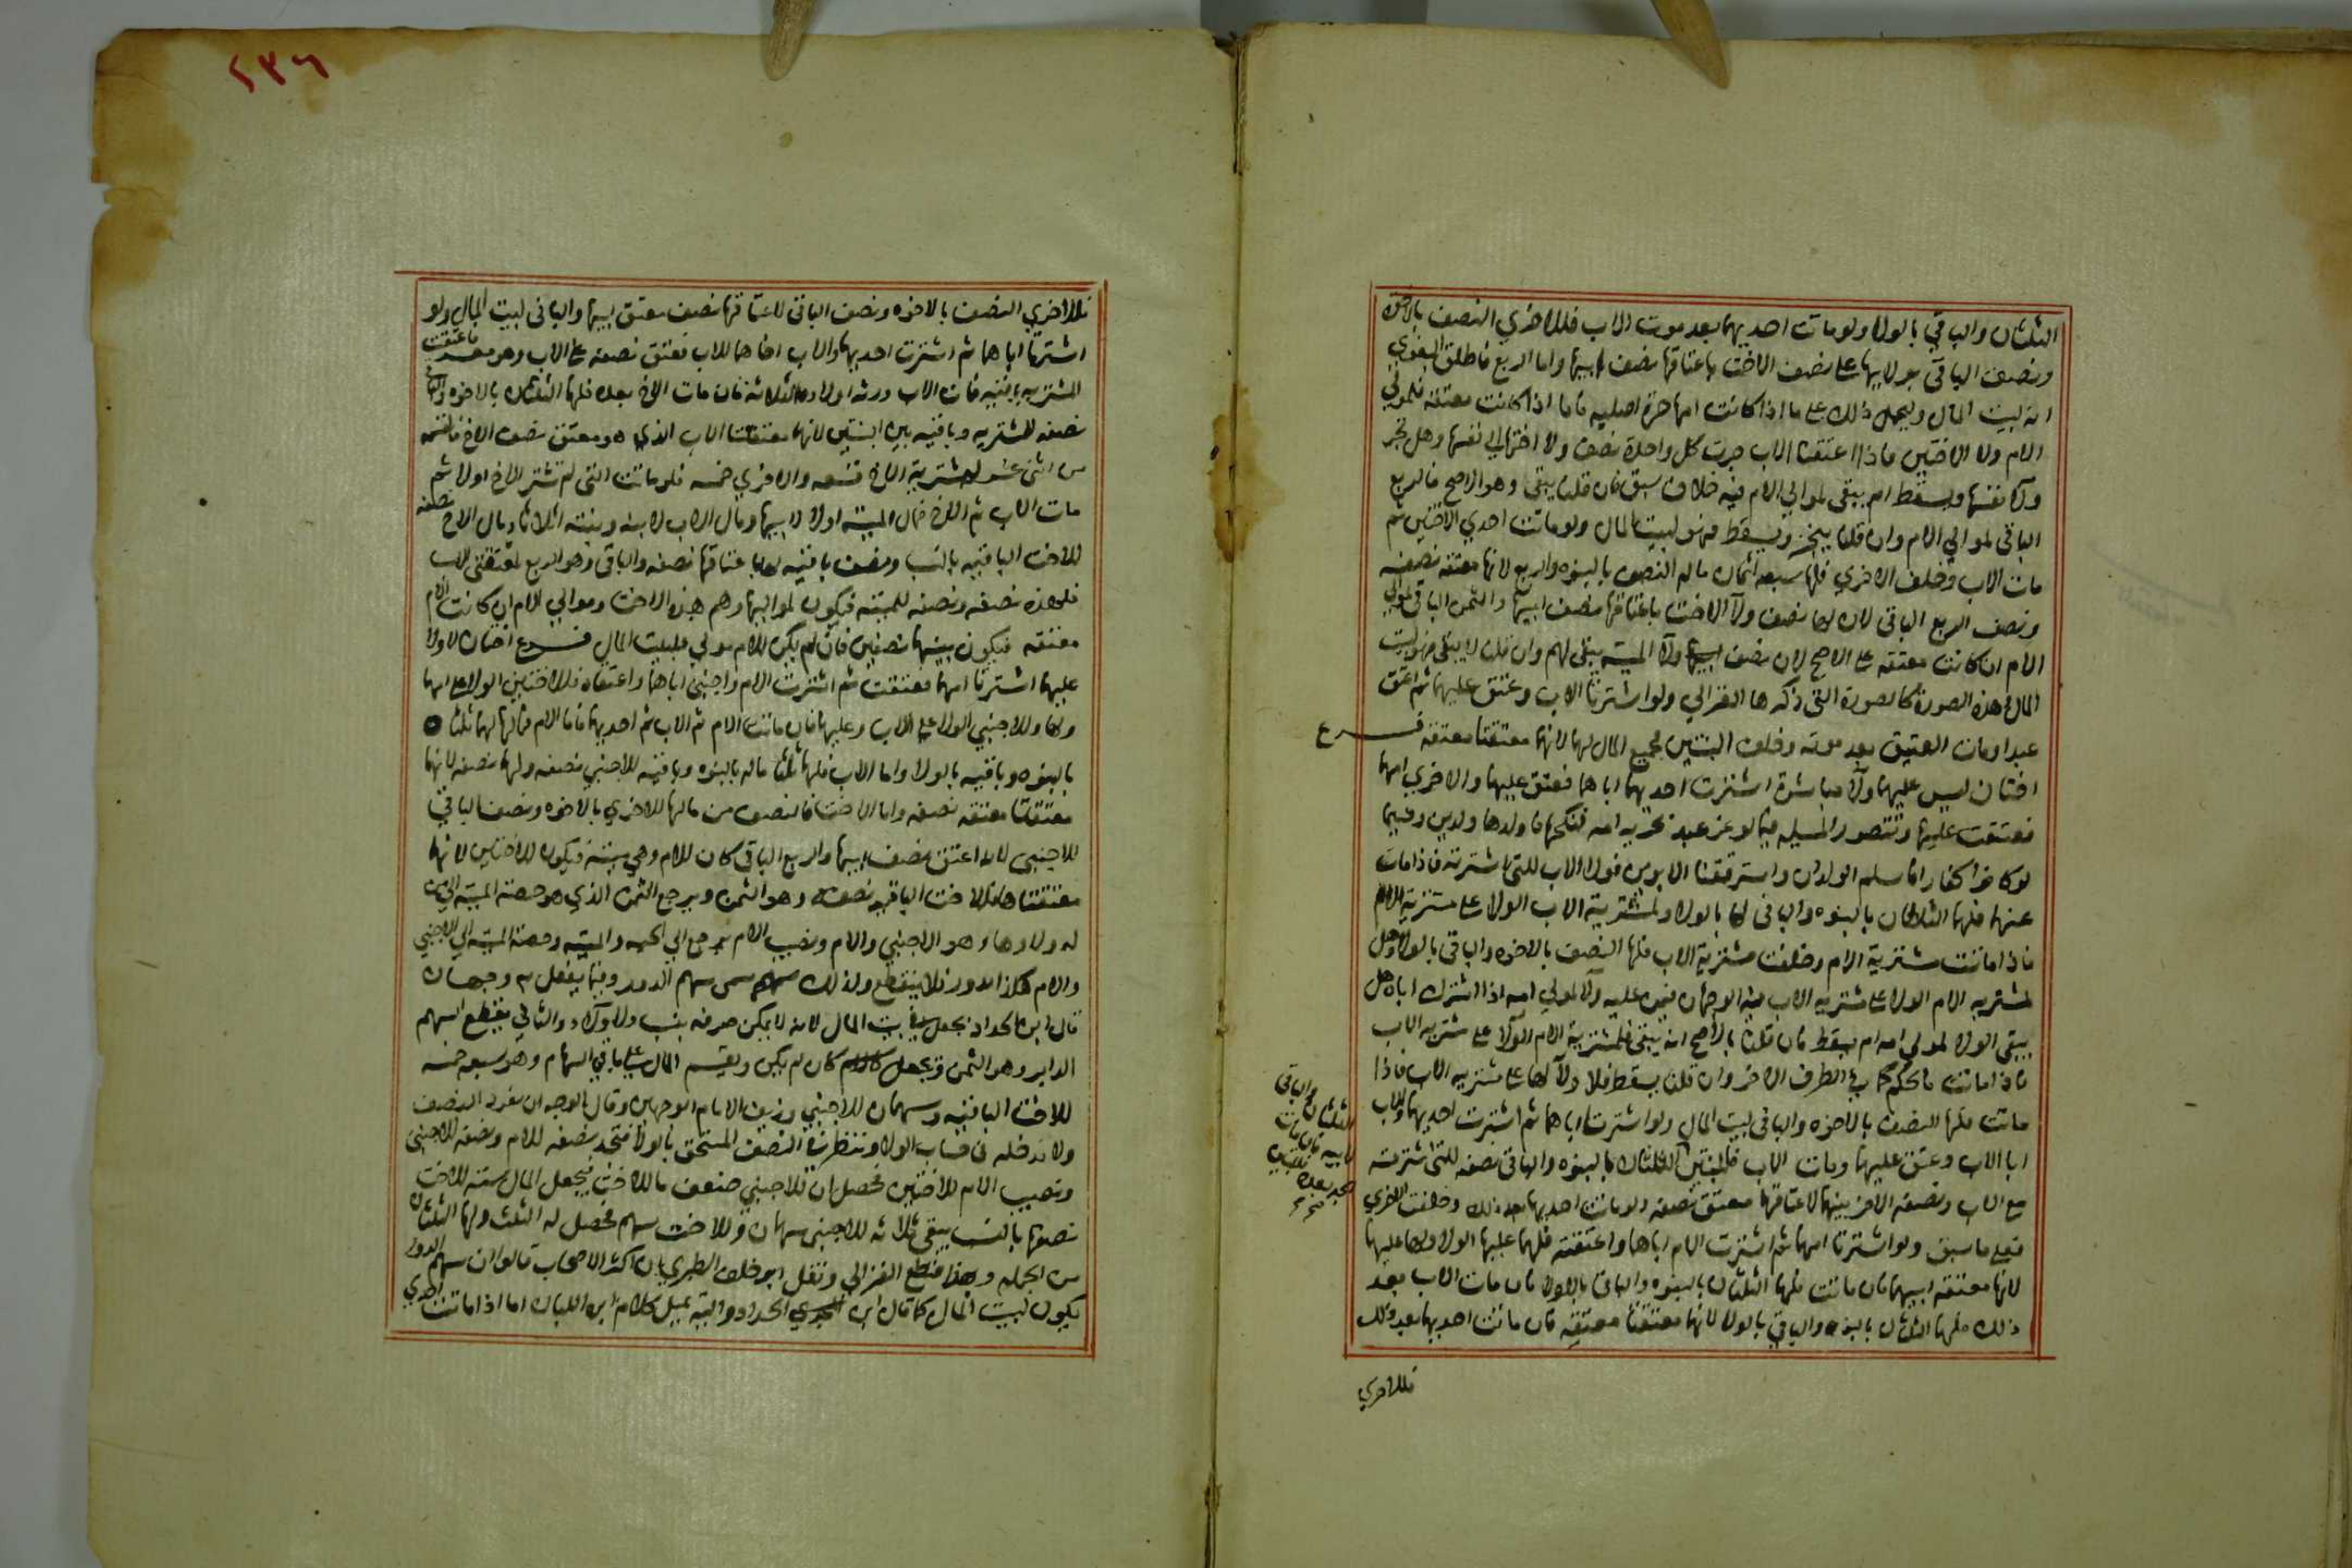 الثلثان والباقي بالولاء ولو ماتت احديهما بعد موت الاب فللاخري النصف بالاخوة
ونصف الباقي بولايها على نصف الاخت باعتاقها نصف ابيها واما الربع فاطلق البغوي
انه لبيت المال ويحمل ذلك على ما اذا كانت امها حرة اصليه فاما اذا كانت معتقه فلموالي
الام ولا الاختين فاذا اعتقتا الاب جرت كل واحدة نصف ولا اختها الي نفسها وهل تجر
ولاء نفسها ويسقط ام يبقى لموالي الام فيه خلاف سبق فان قلنا يبقى وهو الاصح فالربع
الباقي لموالي الام وان قلنا ينجر ويسقط فهو لبيت المال ولو ماتت احدي الاختين ثم
مات الاب وخلف الاخري فلها سبعه اثمان ماله النصف بالبنوه والربع لانها معتقه نصفه
ونصف الربع الباقي لان لها نصف ولاء الاخت باعتاقها نصف ابيها والثمن الباقي لموالي
الام ان كانت معتقه على الاصح لان نصف ولاء الميته يبقى لهم وان قلنا لا يبقى فهو لبيت
المال في هذه الصورة كالصورة التي ذكرها الغزالي ولو اشترتا الاب وعتق عليهما ثم اعتق
عبدا ومات العتيق بعد موته وخلف البنتين فجميع المال لهما لانهما معتقتا معتقه فرع
اختان ليس عليهما ولاء مباشرة اشترت احديهما اباهما فعتق عليهما والاخري امهما
فعتقت عليها وتتصور المسيله فيما لو غر عبد بحريه امه فنكحها فاولدها ولدين وفيما
لو كانوا كفارا فاسلم الولدان واسترققنا الابوين فولاء الاب للتي اشترته فاذا مات
عنهما فلهما الثلثان بالبنوه والباقي لها بالولاء ولمشترية الاب الولاء على مشترية الام
فاذا ماتت مشترية الام وخلفت مشترية الاب فلها النصف بالاخوه والباقي بالولاء وهل
لمشتريه الام الولاء على مشتريه الاب فيه الوجهان فيمن عليه ولاء لموالي امه اذا اشترى اباه هل
يبقى الولاء لموالي امه ام يسقط فان قلنا بالاصح انه يبقى فلمشترية الام الولاء على مشتريه الاب
فاذا ماتت فالحكم كما في الطرف الاخر وان قلنا يسقط فلا ولاء لها على مشتريه الاب فاذا
ماتت فلها النصف بالاخوه والباقي لبيت المال ولو اشترتا اباهما ثم اشترت احديهما والاب
ابا الاب وعتق عليهما ومات الاب فللبنتين الثلثان بالبنوه والباقي نصفه للتي اشترته
مع الاب ونصفه الاخر بينهما لاعتاقهما معتق نصفه ولو ماتت احديهما بعد ذلك وخلفت الاخري
فعلى ما سبق ولو اشترتا امهما ثم اشترت الام اباهما واعتقته فلهما عليها الولاء ولها عليهما
لانها معتقه ابيهما فان ماتت فلهما الثلثان بالبنوه والباقي بالولاء فان مات الاب بعد
ذلك فلهما الثلثان بالبنوه والباقي بالولاء لانهما معتقتا معتقه فان ماتت احديهما بعد ذلك
فللاخري
الثلثان والباقي
لابيه فان مات
فللاخري النصف بالاخوه ونصف الباقي لاعتاقها نصف معتق ابيها والباقي لبيت المال ولو
اشترتا اباهما ثم اشترت احديهما والاب اخاهما للاب فعتق نصفه على الاب وهو معسر فاعتقت
المشتريه باقيه فمات الاب ورثه اولاده الثلاثه فان مات الاخ بعده فلهما الثلثان بالاخوه والباقي
نصفه للمشتريه وباقيه بين البنتين لانهما معتقتا الاب الذي هو معتق نصف الاخ فالقسمه
من اثني عشر لمشترية الاخ سبعه والاخري خمسه فلو ماتت التي لم تشتر الاخ اولا ثم
مات الاب ثم الاخ فمال الميته اولا لابيها ومال الاب لابنه وبنته اثلاثا ومال الاخ نصفه
للاخت الباقيه بالنسب ونصف باقيه لها باعتاقها نصفه والباقي وهو الربع لمعتقتي الاب
فلهذه نصفه ونصفه للميته فيكون لمواليها وهم هذه الاخت وموالي الام ان كانت الام
معتقه فيكون بينهما نصفين فان لم يكن للام مولي فلبيت المال فرع اختان لا ولاء
عليهما اشترتا امهما فعتقت ثم اشترت الام واجنبي اباهما واعتقاه فللاختين الولاء على امهما
ولها وللاجنبي الولاء على الاب وعليهما فان ماتت الام ثم الاب ثم احديهما فاما الام فمالها لهما ثلثاه
بالبنوه وباقيه بالولاء واما الاب فلهما ثلثا ماله بالبنوه وباقيه للاجنبي نصفه ولهما نصفه لانهما
معتقتا معتقه نصفه واما الاخت فالنصف من مالها للاخري بالاخوه ونصف الباقي
للاجنبي لانه اعتق نصف ابيها والربع الباقي كان للام وهي ميته فيكون للاختين لانهما
معتقتاها فللاخت الباقيه نصفه وهو الثمن ويرجع الثمن الذي هو حصة الميته الي من
له ولاوها وهو الاجنبي والام ونصيب الام يرجع الي الحيه والميته وحصة الميته الي الاجنبي
والام هكذا يدور فلا ينقطع ولذلك سمى سهم الدور وفيما يفعل به وجهان
قال ابن الحداد يجعل في بيت المال لانه لا يمكن صرفه بنسب ولا ولاء والثاني يقطع السهم
الداير وهو الثمن ويجعل كان لم يكن ويقسم المال على باقي السهام وهو سبعه خمسه
للاخت الباقيه وسهمان للاجنبي وزيف الامام الوجهين وقال الوجه ان يفرد النصف
ولا ندخله في حساب الولاء وننظر في النصف المستحق بالولاء فنجد نصفه للام ونصفه للاجنبي
ونصيب الام للاختين فحصل ان للاجنبي ضعف ما للاخت فيجعل المال سته للاخت
نصفها بالنسب يبقى ثلاثه للاجنبي سهمان وللاخت سهم فحصل له الثلث ولها الثلثان
من الجمله وبهذا قطع الغزالي ونقل ابو خلف الطبري ان اكثر الاصحاب قالوا ان سهم الدور
يكون لبيت المال كما قال ابن الحداد واليه يميل كلام ابن اللبان اما اذا ماتت احدي
٢٣٦